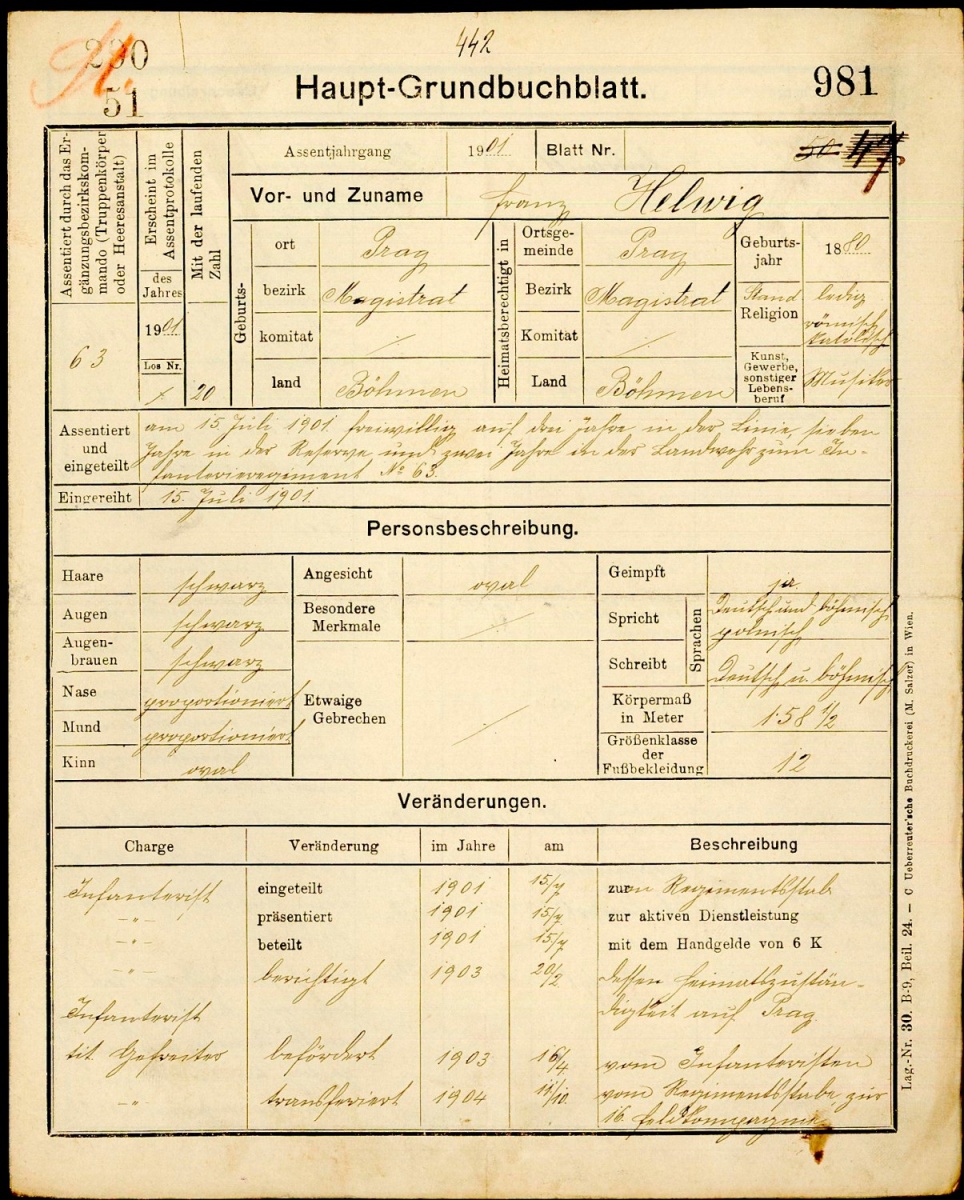 442
200
51
Haupt-Grundbuchblatt.
981
Assentiert durch das Er-
gänzungsbezirkskom-
mando (Truppenkörper
oder Heeresanstalt)
63
Erscheint im
Assentprotokolle
des
Jahres
1901
Los Nr.
Mit der laufenden
Zahl
20
Assentjahrgang 1901 Blatt Nr. 50 47
Vor- und Zuname Franz Helwig
Geburts-
ort Prag
bezirk Magistrat
komitat /
land Böhmen
Heimatsberechtigt in
Ortsge-
meinde Prag
Bezirk Magistrat
Komitat /
Land Böhmen
Geburts-
jahr 1880
Stand ledig
Religion römisch
katolisch
Kunst,
Gewerbe,
sonstiger
Lebens-
beruf
Musiker
Assentiert
und
eingeteilt
am 15. Juli 1901 freiwillig auf drei Jahre in der Linie, sieben
Jahre in der Reserve und zwei Jahre in der Landwehr zum In-
fanterieregiment No 63.
Eingereiht 15. Juli 1901.
Personsbeschreibung.
Haare schwarz
Augen schwarz
Augen-
brauen schwarz
Nase proportioniert
Mund proportioniert
Kinn oval
Angesicht oval
Besondere
Merkmale /
Etwaige
Gebrechen /
Geimpft ja
Sprachen
Spricht Deutsch und böhmisch
polnisch
Schreibt Deutsch u. böhmisch
Körpermaß
in Meter 1·58 1/2
Größenklasse
der
Fußbekleidung 12
Veränderungen.
Charge Veränderung im Jahre am Beschreibung
Infanterist eingeteilt 1901 15/7 zum Regimentsstab
-"- präsentiert 1901 15/7 zur aktiven Dienstleistung
-"- beteilt 1901 15/7 mit dem Handgelde von 6 K
-"- berichtigt 1903 20/2 dessen Heimatszustän-
Infanterist digkeit auf Prag.
tit. Gefreiter befördert 1903 16/4 vom Infanteristen
-"- transferiert 1904 11/10. vom Regimentsstabe zur
16. Feldkompagnie
Lag.-Nr. 30. B-9, Beil. 24. — C Ueberreuter'sche Buchdruckerei (M. Salzer) in Wien.